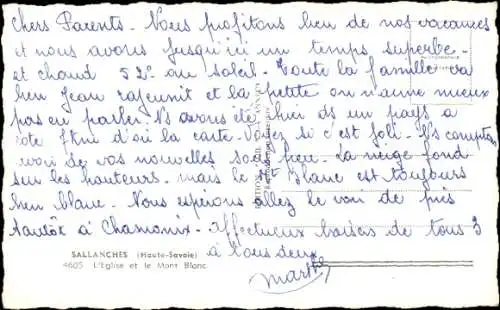 Chers Parents. Nous profitons bien de nos vacances
et nous avons jusqu'ici un temps superbe.
et chaud 52° au soleil. Toute la famille va
bien Jean et la petite on n'aime mieux
pas en parler. Ns avons été hier ds un pays a
côté d'où la carte. Voyez si c'est joli. Ns comptons
avoir de vos nouvelles sous peu. La neige fond
sur les hauteurs. mais le Mt Blanc est toujours
bien blanc. Nous espérons allez le voir de près
tantôt à Chamonix. Affectueux baisers de tous 3
à tous deux
Marthe
SALLANCHES (Haute-Savoie)
4605 L'Eglise et le Mont Blanc